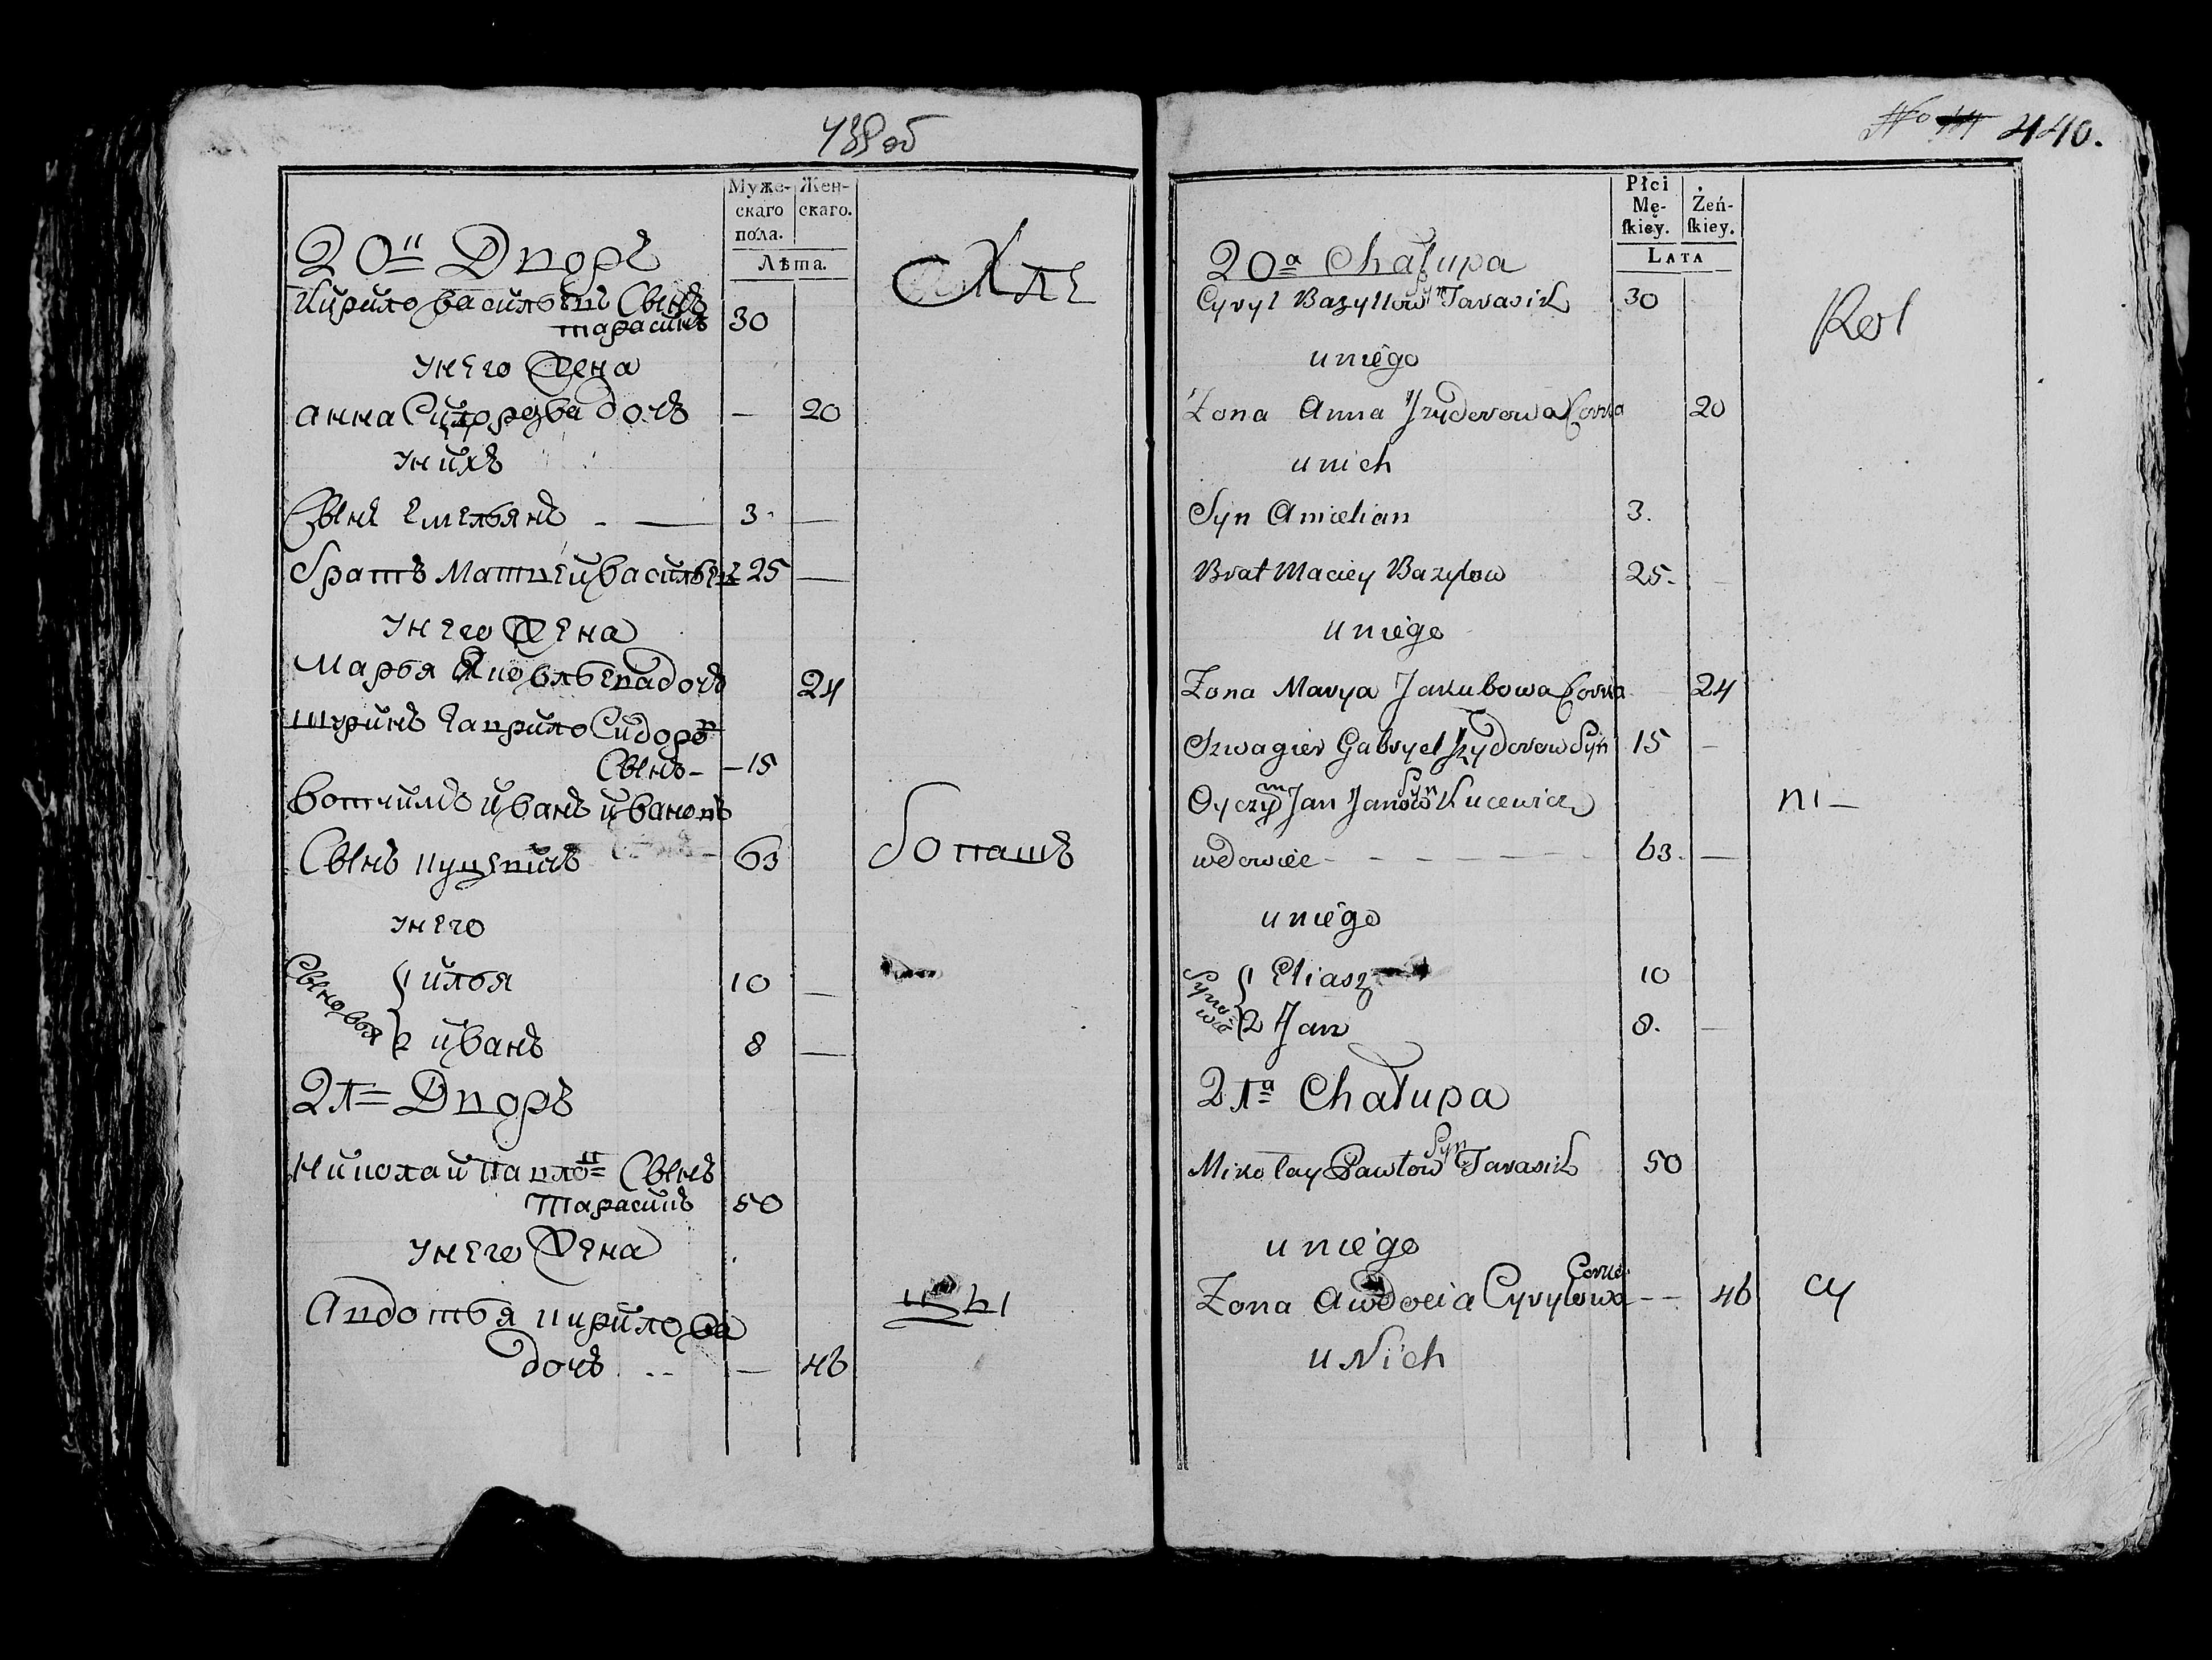 439 об
Муже-
скаго
пола.
Жен-
скаго.
Лѣта.
20й Дворъ
Кирило Васильевъ Сынъ
Тарасикъ 30
у него Жена
Анна Сидорова дочь — 20
у нихъ
Сынъ Емельянъ — 3. —
Братъ Матвей Васильевъ 25 —
у него Жена
Марья Яковлева дочь 24
Шуринъ Гаврило Сидоровъ
Сынъ — 15
Вотчимъ Иванъ Ивановъ
Сынъ Куцевичъ — 63
у него
Сыновья
1 Илья 10 —
2 Иванъ 8 —
21= Дворъ
Николай Павло= Сынъ
Тарасикъ 50
у него Жена
Авдотья Кирилова
дочь — 46
No 440.
Płci
Mę-
ſkiey.
Żeń-
ſkiey.
LATA
20a Chałupa
Cyryl Bazyllow Syn Tarasik 30
u niego
Zona Anna Jzydorowa Corka 20
u nich
Syn Amielian 3.
Brat Maciey Bazylow 25.
u niego
Zona Marya Jakubowa Corka 24
Szwagier Gabryel Jzydorow Syn 15 —
Oyczym Jan Janow Syn Kucewicz ni—
wdowiec — 63. —
u niego
Synowie
1 Eliasz 10
2 Jan 8. —
21a Chałupa
Mikołay Pawłow Syn Tarasik 50
u niego
Zona Awdocia Cyrylowa Corka — 46 cy
u Nich